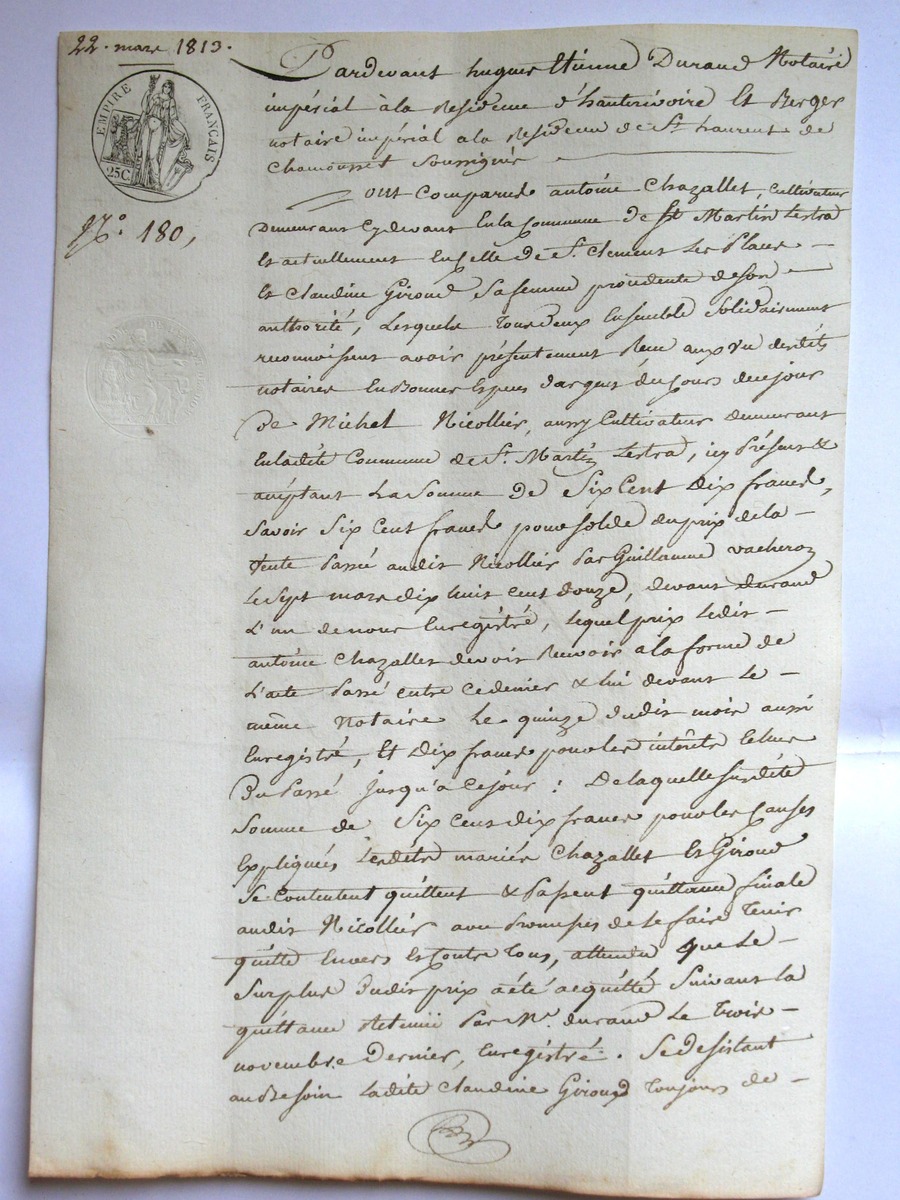 22. mars 1813.
EMPIRE FRANÇAIS
25C.
N.° 180,
Pardevant hugues Etienne Durand Notaire
impérial à la Residence d'hauterivoire Et Berger
notaire impérial a la Residence de St. Laurent de
Chamousset Soussignés
ont comparus antoine Chazallet Cultivateur
Demeurant Cydevant En la Commune de St Martin Lestra
Et actuellement En Celle de St. Clement Les Places
Et Claudine Giroud Sa femme procedente de son
authorité, Lesquels Tous deux Ensemble Solidairement
reconnoissent avoir présentement Recu aux vu desdits
notaires En Bonnes Especes d'argent du Cours de ce jour
De Michel Nicollier, aussy Cultivateur demeurant
En la dite Commune de St. Martin Lestra, icy Présent &
acceptant La Somme de Six Cent Dix francs,
Savoir Six Cent francs pour solde du prix de la
Vente Passé audit Nicollier Par Guillaume vacheron
Le Sept mars dix huit cent douze, devant durand
L'un de nous Enregistré, lequel prix Ledit
antoine Chazallet devoit Recevoir à la forme de
L'acte Passé entre ce dernier & lui devant Le
même Notaire Le quinze dudit mois aussi
Enregistré, Et Dix francs pour les intérêts
Du Passé Jusqu'à Ce jour : De laquelle Susdite
Somme de Six Cent dix francs pour les Causes
Expliquées Lesdits mariés Chazallet Et Giroud
Se Contentent quittent & Passent quittance finale
audit Nicollier avec Promesses de le faire Tenir
quitte Envers Et Contre Tous, attendu que Le
Surplus Dudit prix a été acquitté Suivant la
quittance Par Me. durand Le Trois
novembre Dernier, Enregistré. Se desistant
au Besoin Ladite Claudine Giroud Toujours de